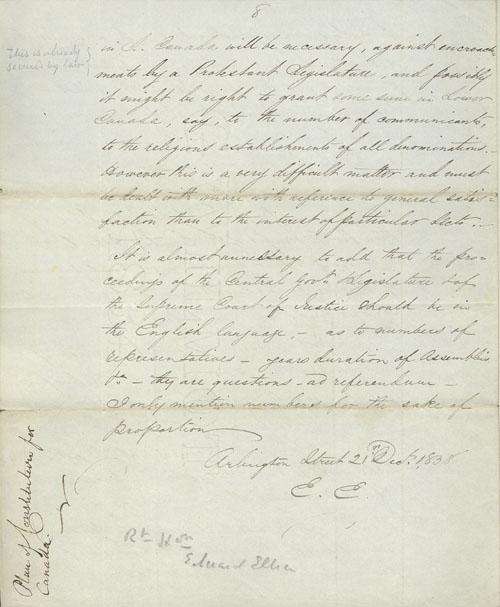 8
This is already
secured by law
in L. Canada will be necessary, against encroach
ments by a Protestant Legislature, and possibly
it might be right to grant some sum in Lower
Canada, say, to the number of communicants,
to the religious establishments of all denominations.
However this is a very difficult matter and must
be dealt with more with reference to general satis-
faction than to the interest of particular sects.
It is almost unnecessary to add that the pro-
ceedings of the Central Govt & Legislature & of
the Supreme Court of Justice should be in
the English language, - as to numbers of
representatives - years duration of Assemblies
&a - they are questions - ad referendum -
I only mention numbers for the sake of
proportion
Arlington Street 21st Decr. 1838
E. E.
Rt Hon
Edward Ellice
Plan of Constitution for
Canada.